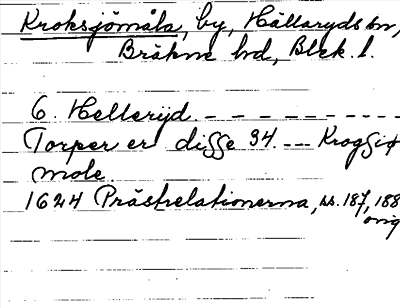 Kroksjömåla, by, Hällaryds sn,
Bräkne hd, Blek. l.
6. Hellerijd. - - - - - - - -
Torper er disse 34. --- Krogsiø
mole.
1624 Prästrelationerna, ss. 187, 188
orig